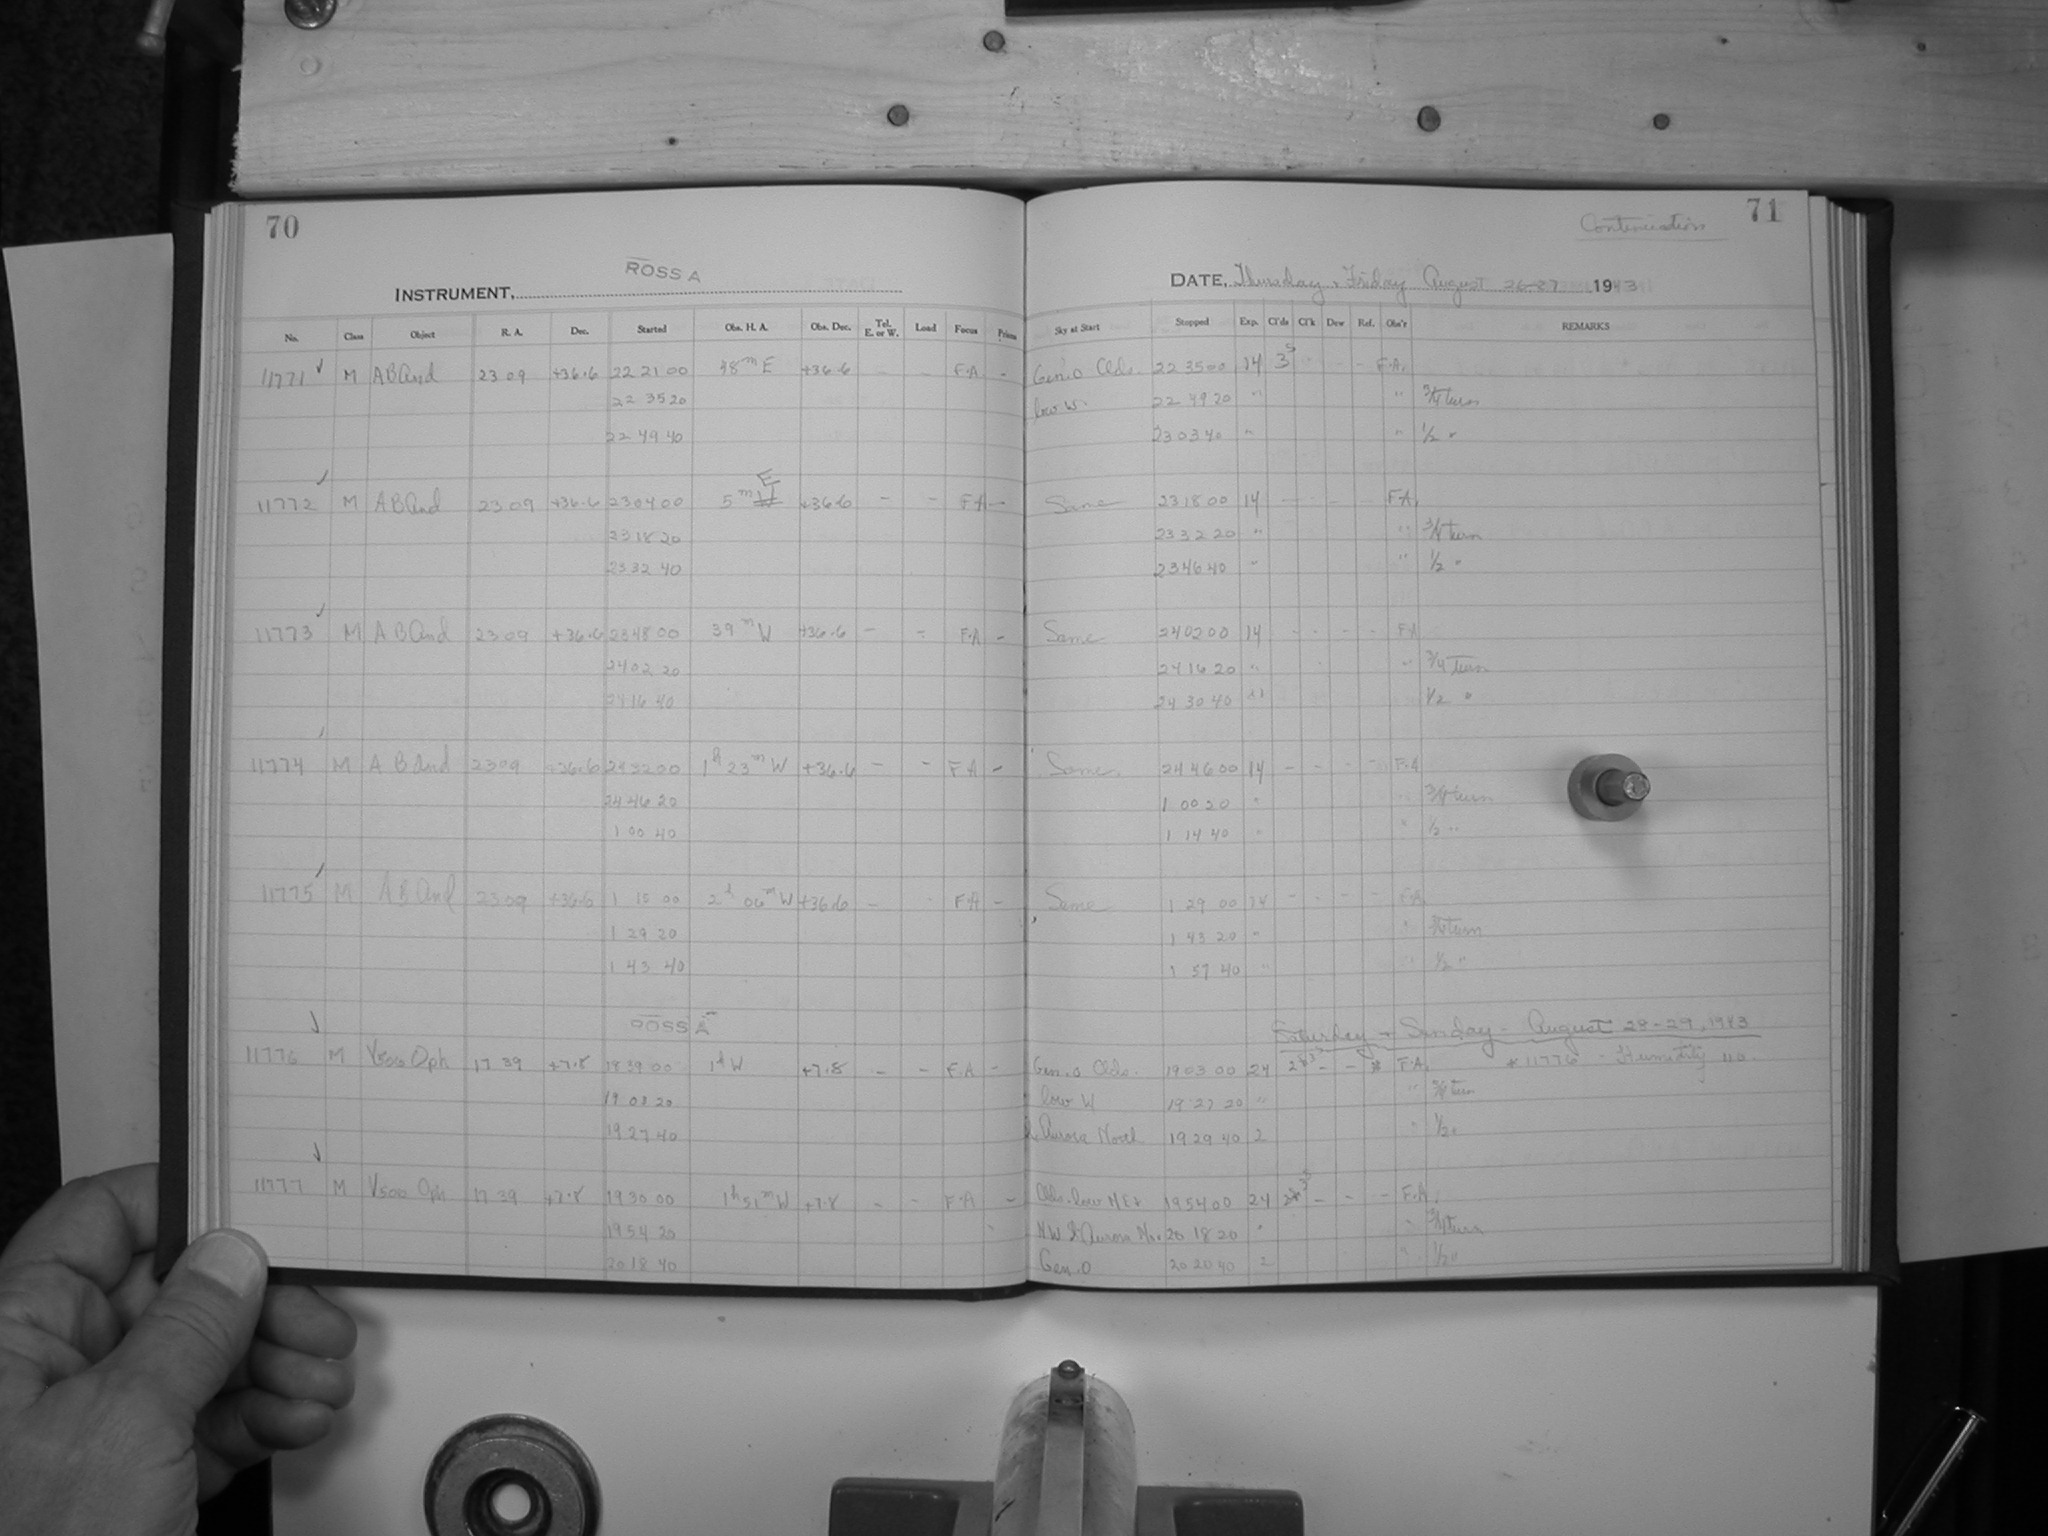 70
71
Continuation
ROSS A
INSTRUMENT,
DATE, Thursday & Friday August 26-27 1943
No. Class Object R. A. Dec. Started Obs. H. A. Obs. Dec. Tel. E. or W. Load Focus Prisms Sky at Start Stopped Exp. Cl'ds Cl'k Dew Ref. Obs'r REMARKS
11771 M AB And 23 09 +36.6 22 21 00 48m E +36.6 - - F.A - Gen. 0 Clds. 22 35 00 14 3 - - F.A.
22 35 20 low W. 22 49 20 " " 3/4 turn
22 49 40 23 03 40 " " 1/2 "
11772 M AB And 23 09 +36.6 23 04 00 5m E +36.6 - - F.A - Same 23 18 00 14 - - - - F.A.
23 18 20 23 32 20 " " 3/4 turn
23 32 40 23 46 40 " " 1/2 "
11773 M AB And 23 09 +36.6 23 48 00 39m W +36.6 - - F.A - Same 24 02 00 14 - - - - F.A
24 02 20 24 16 20 " " 3/4 turn
24 16 40 24 30 40 " 1/2 "
11774 M AB And 23 09 +36.6 24 32 00 1h 23m W +36.6 - - F.A - Same 24 46 00 14 - - - - F.A
24 46 20 1 00 20 " " 3/4 turn
1 00 40 1 14 40 " " 1/2 "
11775 M AB And 23 09 +36.6 1 15 00 2h 06m W +36.6 - - F.A - Same 1 29 00 14 - - - - F.A
1 29 20 1 43 20 " " 3/4 turn
1 43 40 1 57 40 " " 1/2 "
ROSS A Saturday & Sunday - August 28-29, 1943
11776 M V500 Oph 17 39 +7.8 18 39 00 1h W +7.8 - - F.A - Gen. 0 Clds. 19 03 00 24 - - * F.A. * 11776 - Humidity 110.
19 03 20 low W 19 27 20 " " 3/4 turn
19 27 40 Aurora North 19 29 40 2 " 1/2 "
11777 M V500 Oph 17 39 +7.8 19 30 00 1h 51m W +7.8 - - F.A - Clds. low NE & 19 54 00 24 - - - F.A.
19 54 20 N.W & Aurora No. 20 18 20 " " 3/4 turn
20 18 40 Gen. 0 20 20 40 2 " 1/2 "